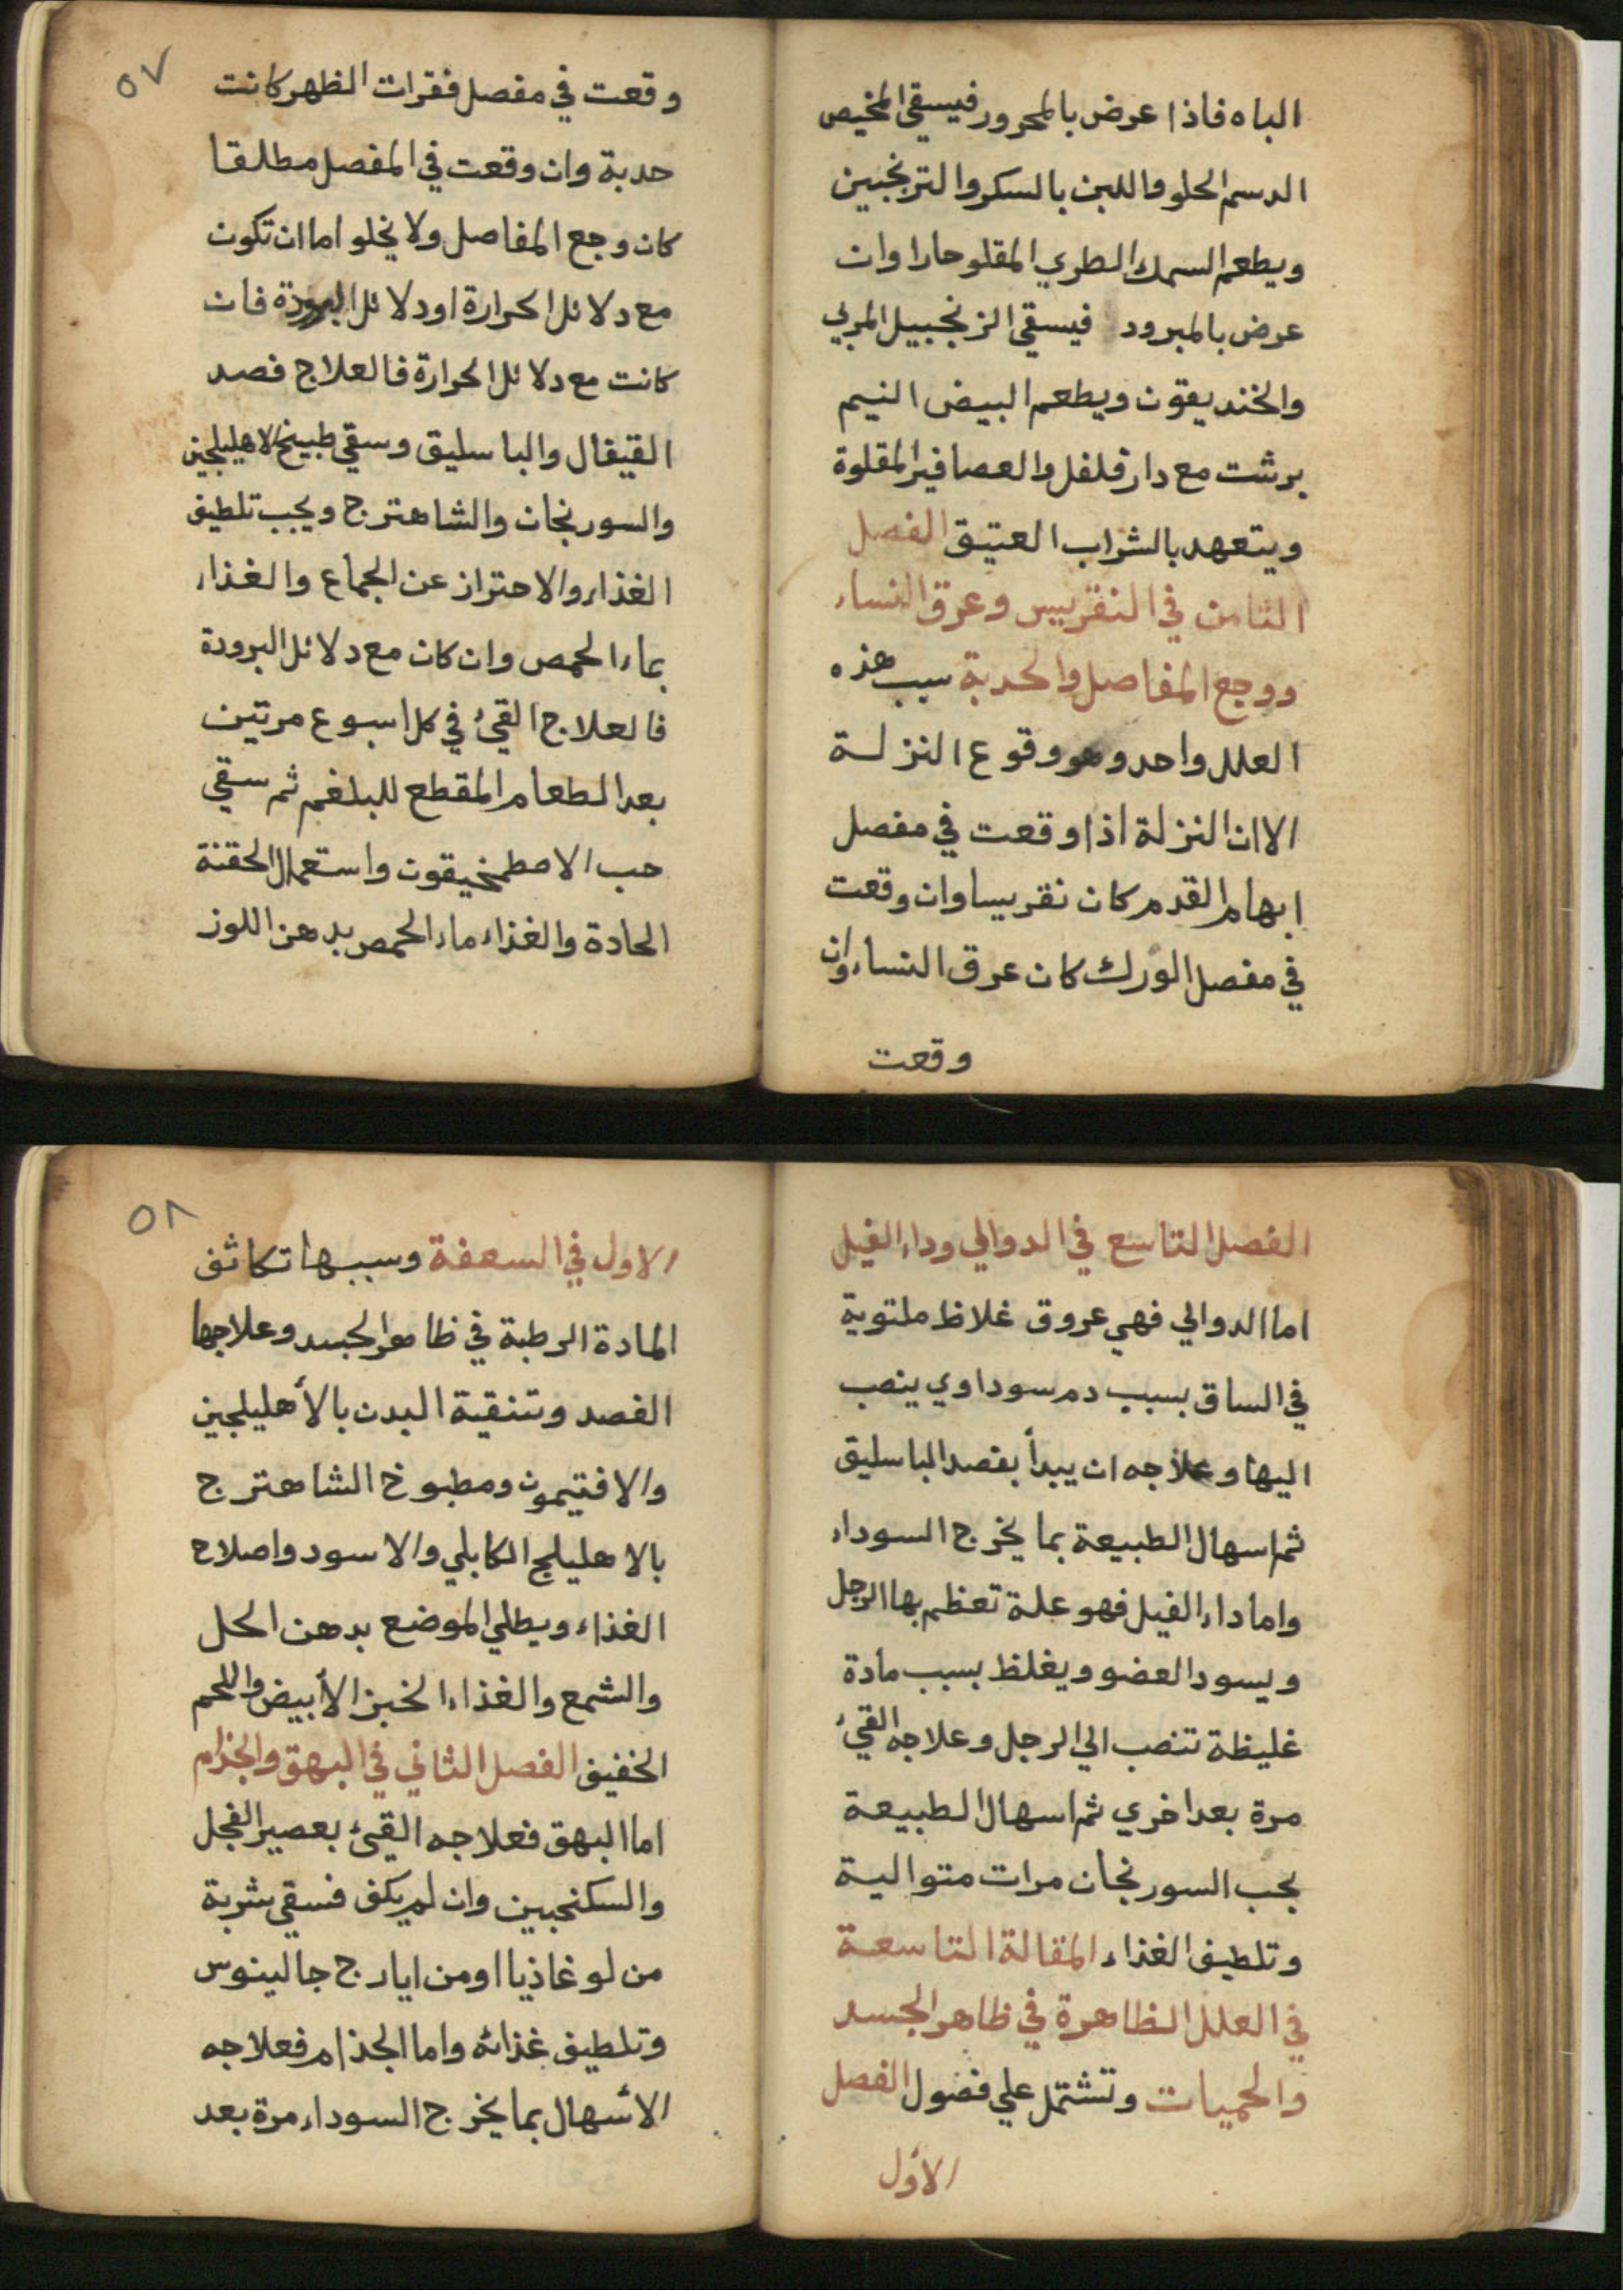 الباه فاذا عرض بالمحرور فيسقي المخيض
الدسم الحلو واللبن بالسكر والترنجبين
ويطعم السمك الطري المقلو حارا وان
عرض بالمبرود فيسقي الزنجبيل المربي
والخنديقون ويطعم البيض النيم
برشت مع دار فلفل والعصافير المقلوة
ويتعهد بالشراب العتيق الفصل
الثامن في النقريس وعرق النساء
ووجع المفاصل والحدبة سبب هذه
العلل واحد وهو وقوع النزلة
الا ان النزلة اذا وقعت في مفصل
ابهام القدم كان نقريسا وان وقعت
في مفصل الورك كان عرق النساء وان
وقعت
٥٧
وقعت في مفصل فقرات الظهر كانت
حدبة وان وقعت في المفصل مطلقا
كان وجع المفاصل ولا يخلو اما ان تكون
مع دلائل الحرارة او دلائل البرودة فان
كانت مع دلائل الحرارة فالعلاج فصد
القيفال والباسليق وسقي طبيخ الاهليلجين
والسورنجان والشاهترج ويجب تلطيف
الغذاء والاحتراز عن الجماع والغذاء
بماء الحمص وان كان مع دلائل البرودة
فالعلاج القيء في كل اسبوع مرتين
بعد الطعام المقطع للبلغم ثم سقي
حب الاصطمخيقون واستعمال الحقنة
الحادة والغذاء ماء الحمص بدهن اللوز
الفصل التاسع في الدوالي وداء الفيل
اما الدوالي فهي عروق غلاظ ملتوية
في الساق بسبب دم سوداوي ينصب
اليها وعلاجه ان يبدأ بفصد الباسليق
ثم اسهال الطبيعة بما يخرج السوداء
واما داء الفيل فهو علة تعظم بها الرجل
ويسود العضو ويغلظ بسبب مادة
غليظة تنصب الي الرجل وعلاجه القيء
مرة بعد اخري ثم اسهال الطبيعة
بحب السورنجان مرات متوالية
وتلطيف الغذاء المقالة التاسعة
في العلل الظاهرة في ظاهر الجسد
والحميات وتشتمل علي فضول الفصل
الأول
٥٨
الاول في السعفة وسببها تكاثف
المادة الرطبة في ظاهر الجسد وعلاجها
الفصد وتنقية البدن بالأهليلجين
والافتيمون ومطبوخ الشاهترج
بالاهليلج الكابلي والاسود واصلاح
الغذاء ويطلي الموضع بدهن الحل
والشمع والغذاء الخبز الأبيض واللحم
الخفيف الفصل الثاني في البهق والجذام
اما البهق فعلاجه القيء بعصير الفجل
والسكنجبين وان لم يكف فسقي شربة
من لوغاذيا او من ايارج جالينوس
وتلطيف غذائه واما الجذام فعلاجه
الأسهال بما يخرج السوداء مرة بعد